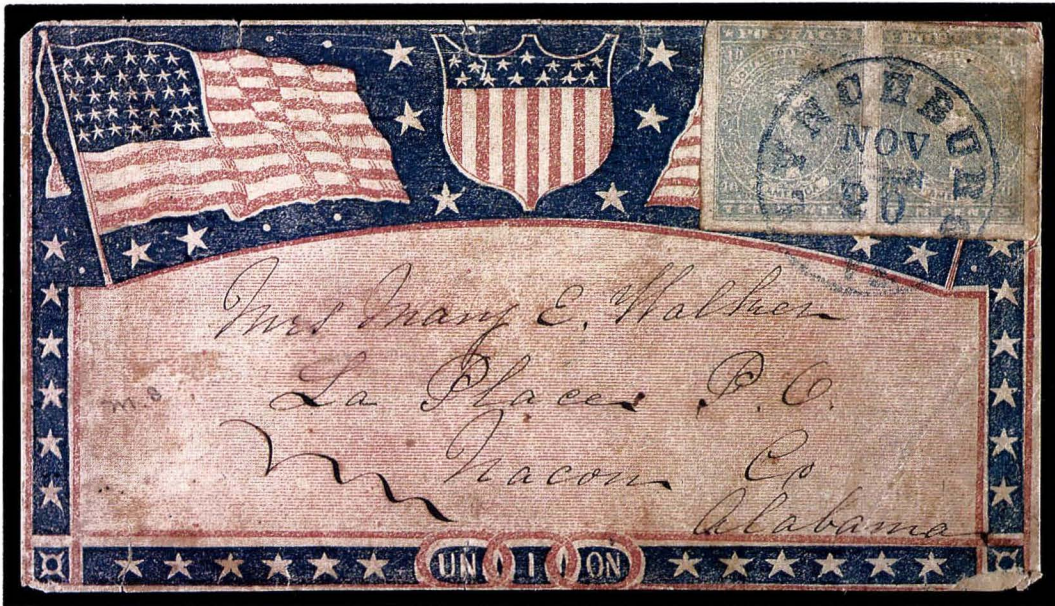 ★POSTAGE
10 10
LYNCHBURG
NOV
20
VA
Mrs Mary E. Walker
La Place P.O.
Macon Co
Alabama
M. B
UN I ON